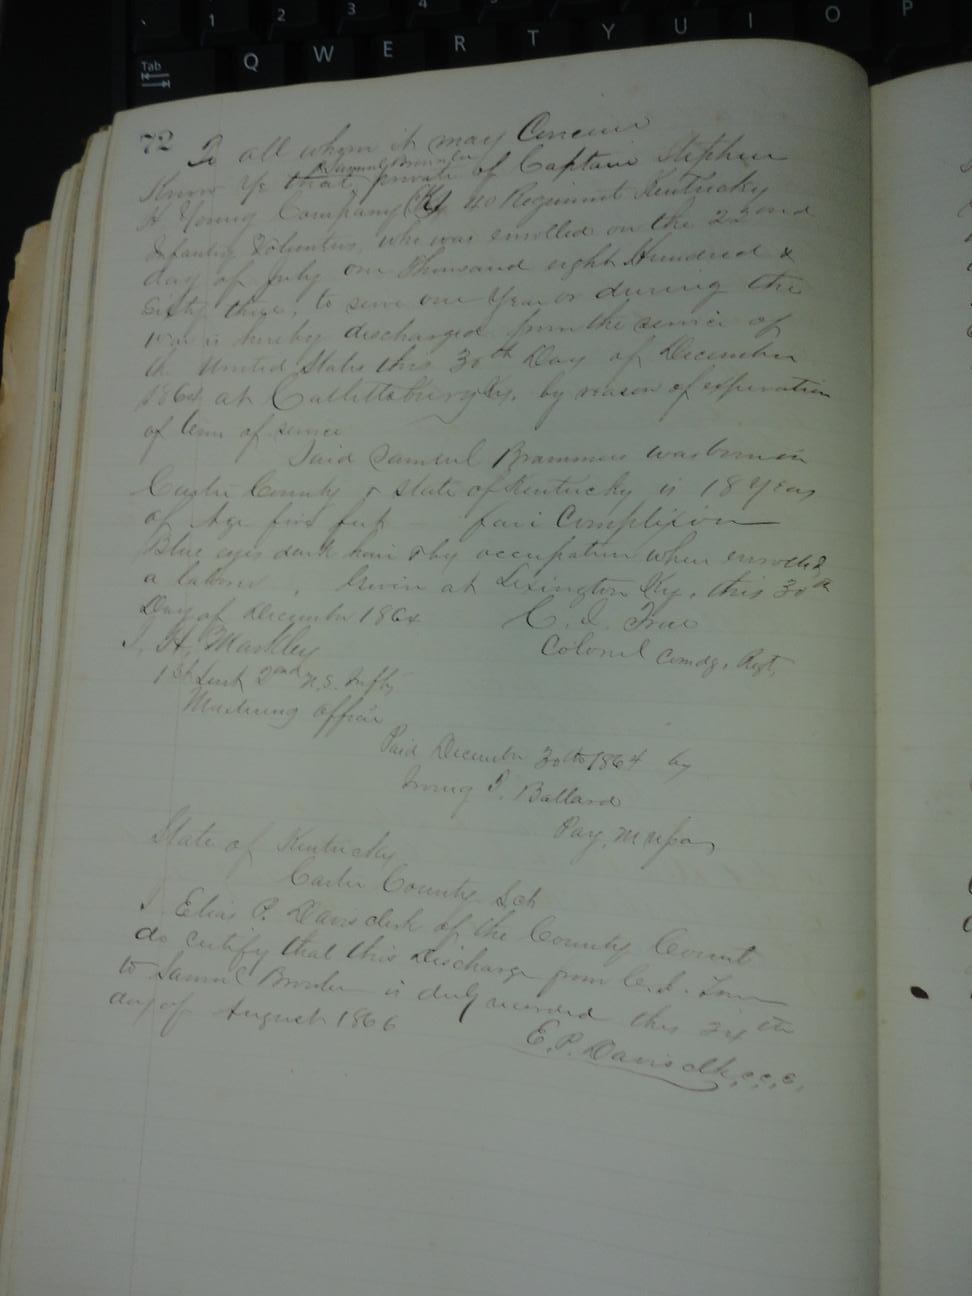 1 2 3
Tab Q W E R T Y U I O P
72
To all whom it may Concern
Samuel Brammer
Know Ye that private of Captain Stephen
H Young Company (K) 40 Regiment Kentucky
Infantry Volunteers, who was enrolled on the 22nd
day of July one Thousand eight Hundred &
Sixty three, to serve one Year or during the
war is hereby discharged from the service of
the United States this 30th Day of December
1864 at Catlettsburg Ky. by reason of expiration
of term of service
Said Samuel Brammer was born in
Carter County & State of Kentucky is 18 Years
of Age five feet — fair Complexion
Blue eyes dark hair & by occupation when enrolled
a laborer, Given at Lexington Ky. this 30th
Day of December 1864 C. J. True
Colonel Comdg. Regt,
J. H. Markley
1st Lieut 2nd U.S. Infty
Mustering Officer
Paid December 30th 1864 by
Irving S. Ballard
Pay.
State of Kentucky
Carter County Sct
I Elias P. Davis clerk of the County Court
do certify that this Discharge from C. J. True
to Samuel is duly recorded this 24th
day of August 1866
E. P. Davis clk, c, c, c,